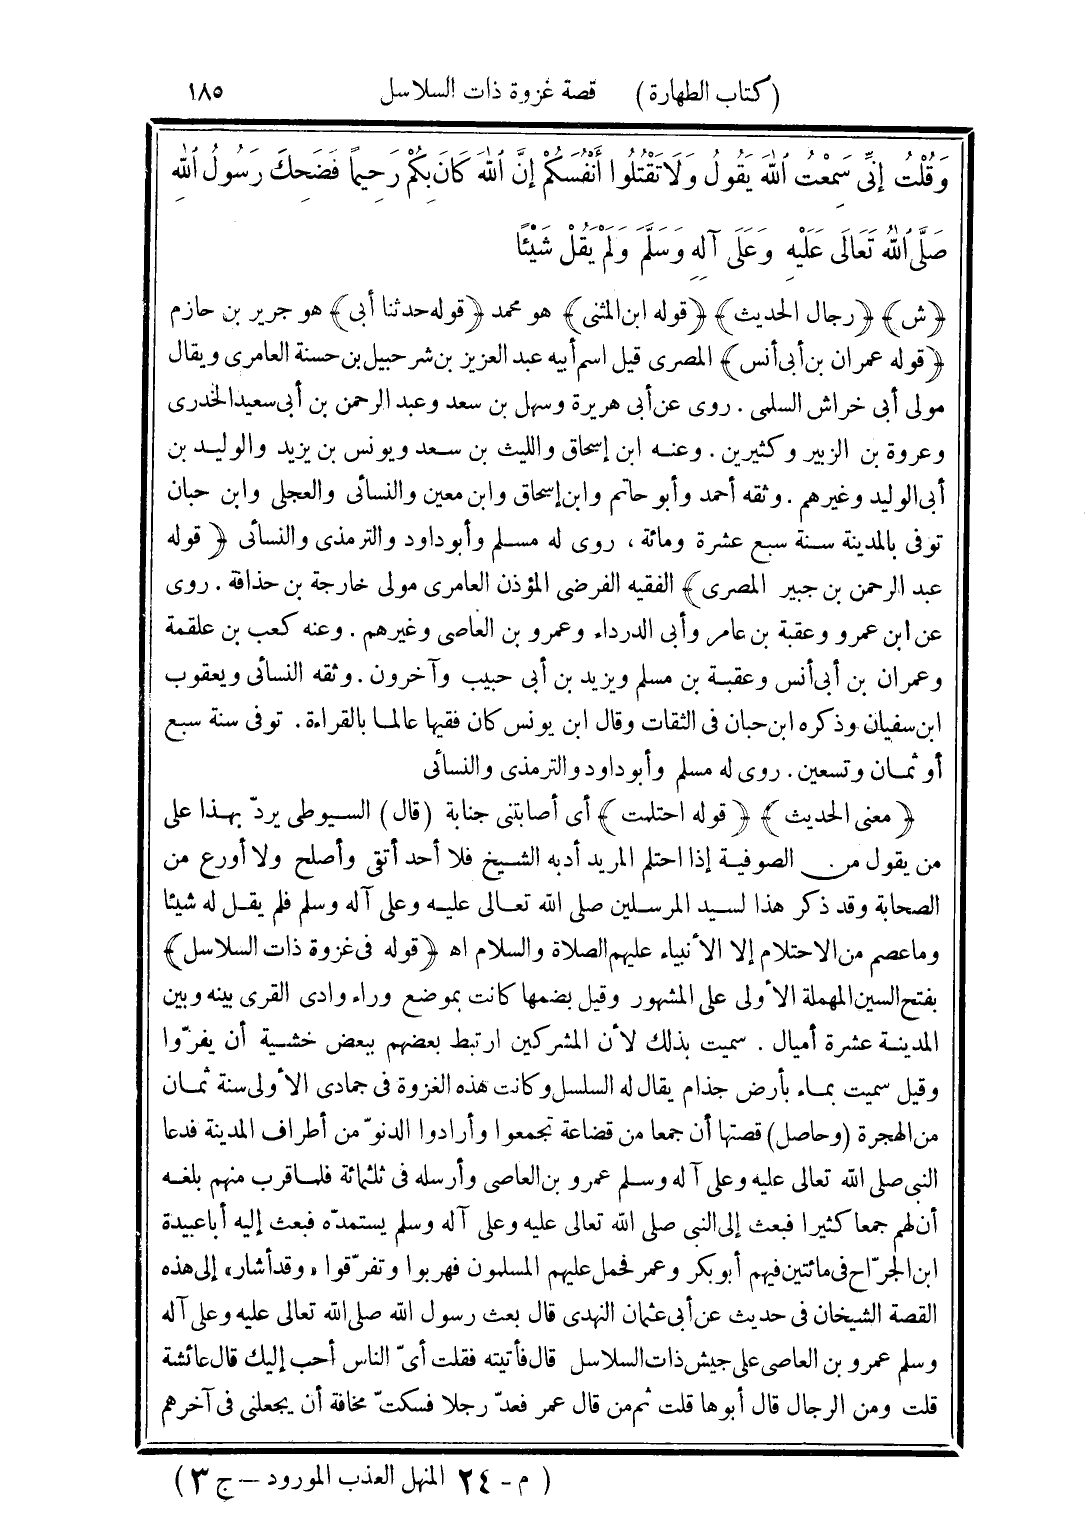 (كتاب الطهارة) قصة غزوة ذات السلاسل ١٨٥
وَقُلْتُ إِنِّى سَمِعْتُ ٱللهَ يَقُولُ وَلَا تَقْتُلُوا أَنْفُسَكُمْ إِنَّ ٱللهَ كَانَ بِكُمْ رَحِيمًا فَضَحِكَ رَسُولُ ٱللهِ
صَلَّى ٱللهُ تَعَالَى عَلَيْهِ وَعَلَى آلِهِ وَسَلَّمَ وَلَمْ يَقُلْ شَيْئًا
﴿ش﴾ ﴿رجال الحديث﴾ ﴿قوله ابن المثنى﴾ هو محمد ﴿قوله حدثنا أبى﴾ هو جرير بن حازم
﴿قوله عمران بن أبى أنس﴾ المصرى قيل اسم أبيه عبد العزيز بن شرحبيل بن حسنة العامرى ويقال
مولى أبى خراش السلمى . روى عن أبى هريرة وسهل بن سعد وعبد الرحمن بن أبى سعيد الخدرى
وعروة بن الزبير وكثيرين . وعنه ابن إسحاق والليث بن سعد ويونس بن يزيد والوليد بن
أبى الوليد وغيرهم . وثقه أحمد وأبو حاتم وابن إسحاق وابن معين والنسائى والعجلى وابن حبان
توفى بالمدينة سنة سبع عشرة ومائة ، روى له مسلم وأبو داود والترمذى والنسائى ﴿قوله
عبد الرحمن بن جبير المصرى﴾ الفقيه الفرضى المؤذن العامرى مولى خارجة بن حذافة . روى
عن ابن عمرو وعقبة بن عامر وأبى الدرداء وعمرو بن العاصى وغيرهم . وعنه كعب بن علقمة
وعمران بن أبى أنس وعقبة بن مسلم ويزيد بن أبى حبيب وآخرون . وثقه النسائى ويعقوب
ابن سفيان وذكره ابن حبان فى الثقات وقال ابن يونس كان فقيها عالما بالقراءة . توفى سنة سبع
أو ثمان وتسعين . روى له مسلم وأبو داود والترمذى والنسائى
﴿معنى الحديث﴾ ﴿قوله احتلمت﴾ أى أصابتنى جنابة (قال) السيوطى يردّ بهذا على
من يقول من الصوفية إذا احتلم المريد أدبه الشيخ فلا أحد أتقى وأصلح ولا أورع من
الصحابة وقد ذكر هذا لسيد المرسلين صلى الله تعالى عليه وعلى آله وسلم فلم يقل له شيئا
وما عصم من الاحتلام إلا الأنبياء عليهم الصلاة والسلام اه ﴿قوله فى غزوة ذات السلاسل﴾
بفتح السين المهملة الأولى على المشهور وقيل بضمها كانت بموضع وراء وادى القرى بينه وبين
المدينة عشرة أميال . سميت بذلك لأن المشركين ارتبط بعضهم ببعض خشية أن يفرّوا
وقيل سميت بماء بأرض جذام يقال له السلسل وكانت هذه الغزوة فى جمادى الأولى سنة ثمان
من الهجرة (وحاصل) قصتها أن جمعا من قضاعة تجمعوا وأرادوا الدنوّ من أطراف المدينة فدعا
النبى صلى الله تعالى عليه وعلى آله وسلم عمرو بن العاصى وأرسله فى ثلثمائة فلما قرب منهم بلغه
أن لهم جمعا كثيرا فبعث إلى النبى صلى الله تعالى عليه وعلى آله وسلم يستمدّه فبعث إليه أبا عبيدة
ابن الجرّاح فى مائتين فيهم أبو بكر وعمر فحمل عليهم المسلمون فهربوا وتفرّقوا «وقد أشار» إلى هذه
القصة الشيخان فى حديث عن أبى عثمان النهدى قال بعث رسول الله صلى الله تعالى عليه وعلى آله
وسلم عمرو بن العاصى على جيش ذات السلاسل قال فأتيته فقلت أىّ الناس أحب إليك قال عائشة
قلت ومن الرجال قال أبوها قلت ثم من قال عمر فعدّ رجلا فسكتّ مخافة أن يجعلنى فى آخرهم
(م - ٢٤ المنهل العذب المورود – ج ٣)